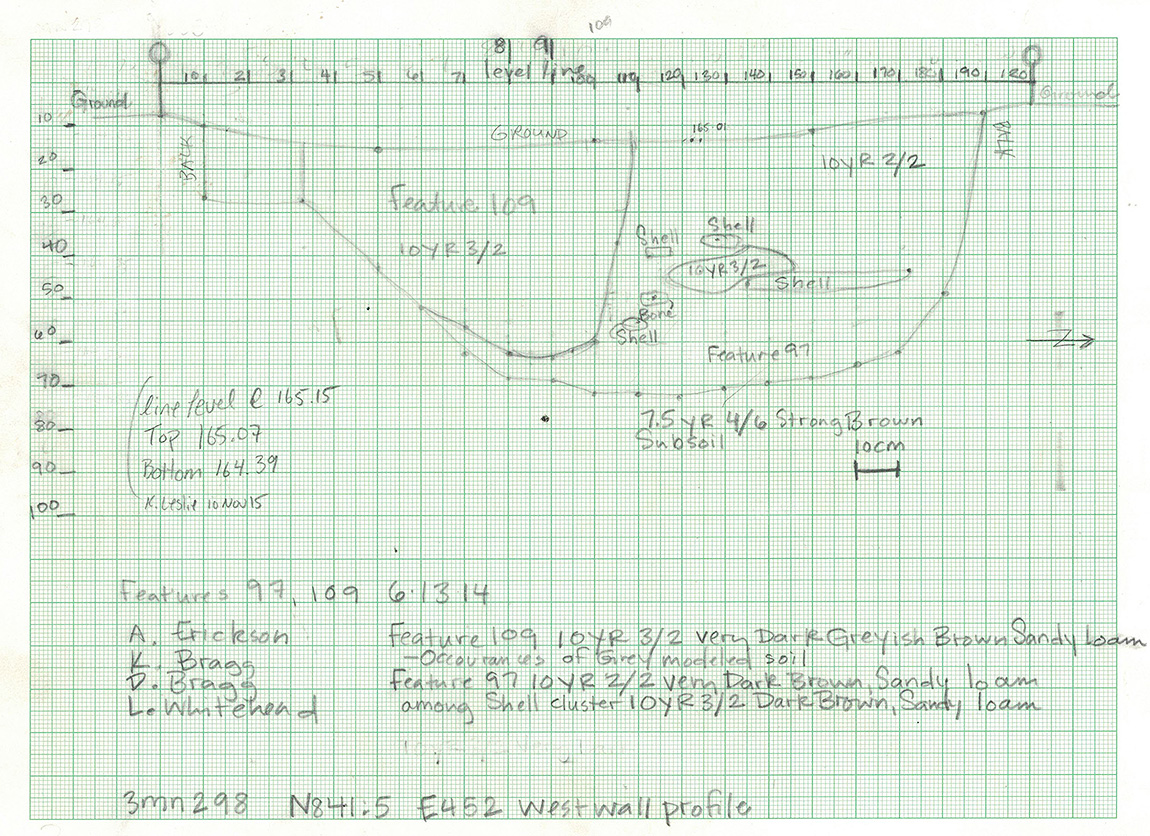 109
8 9
10 2 3 4 5 6 7 level line 119 120 130 140 150 160 170 180 190
Ground
Ground
10
GROUND
165.01
BALK
BALK
20
10YR 2/2
30
Feature 109
40
10YR 3/2
Shell
Shell
10YR 3/2
Shell
50
Bone
60
Shell
Feature 97
Z
70
line level @ 165.15
80
Top 165.07
7.5 YR 4/6 Strong Brown
Subsoil
90
Bottom 164.39
10cm
K. Leslie 10 Nov 15
100
Features 97, 109 6.13.14
A. Erickson
K. Bragg
D. Bragg
L. Whitehead
Feature 109 10YR 3/2 very Dark Greyish Brown Sandy loam
-Occourances of Grey modeled soil
Feature 97 10YR 2/2 very Dark Brown, Sandy loam
among Shell cluster 10YR 3/2 Dark Brown, Sandy loam
3mn298 N841.5 E452 West wall profile